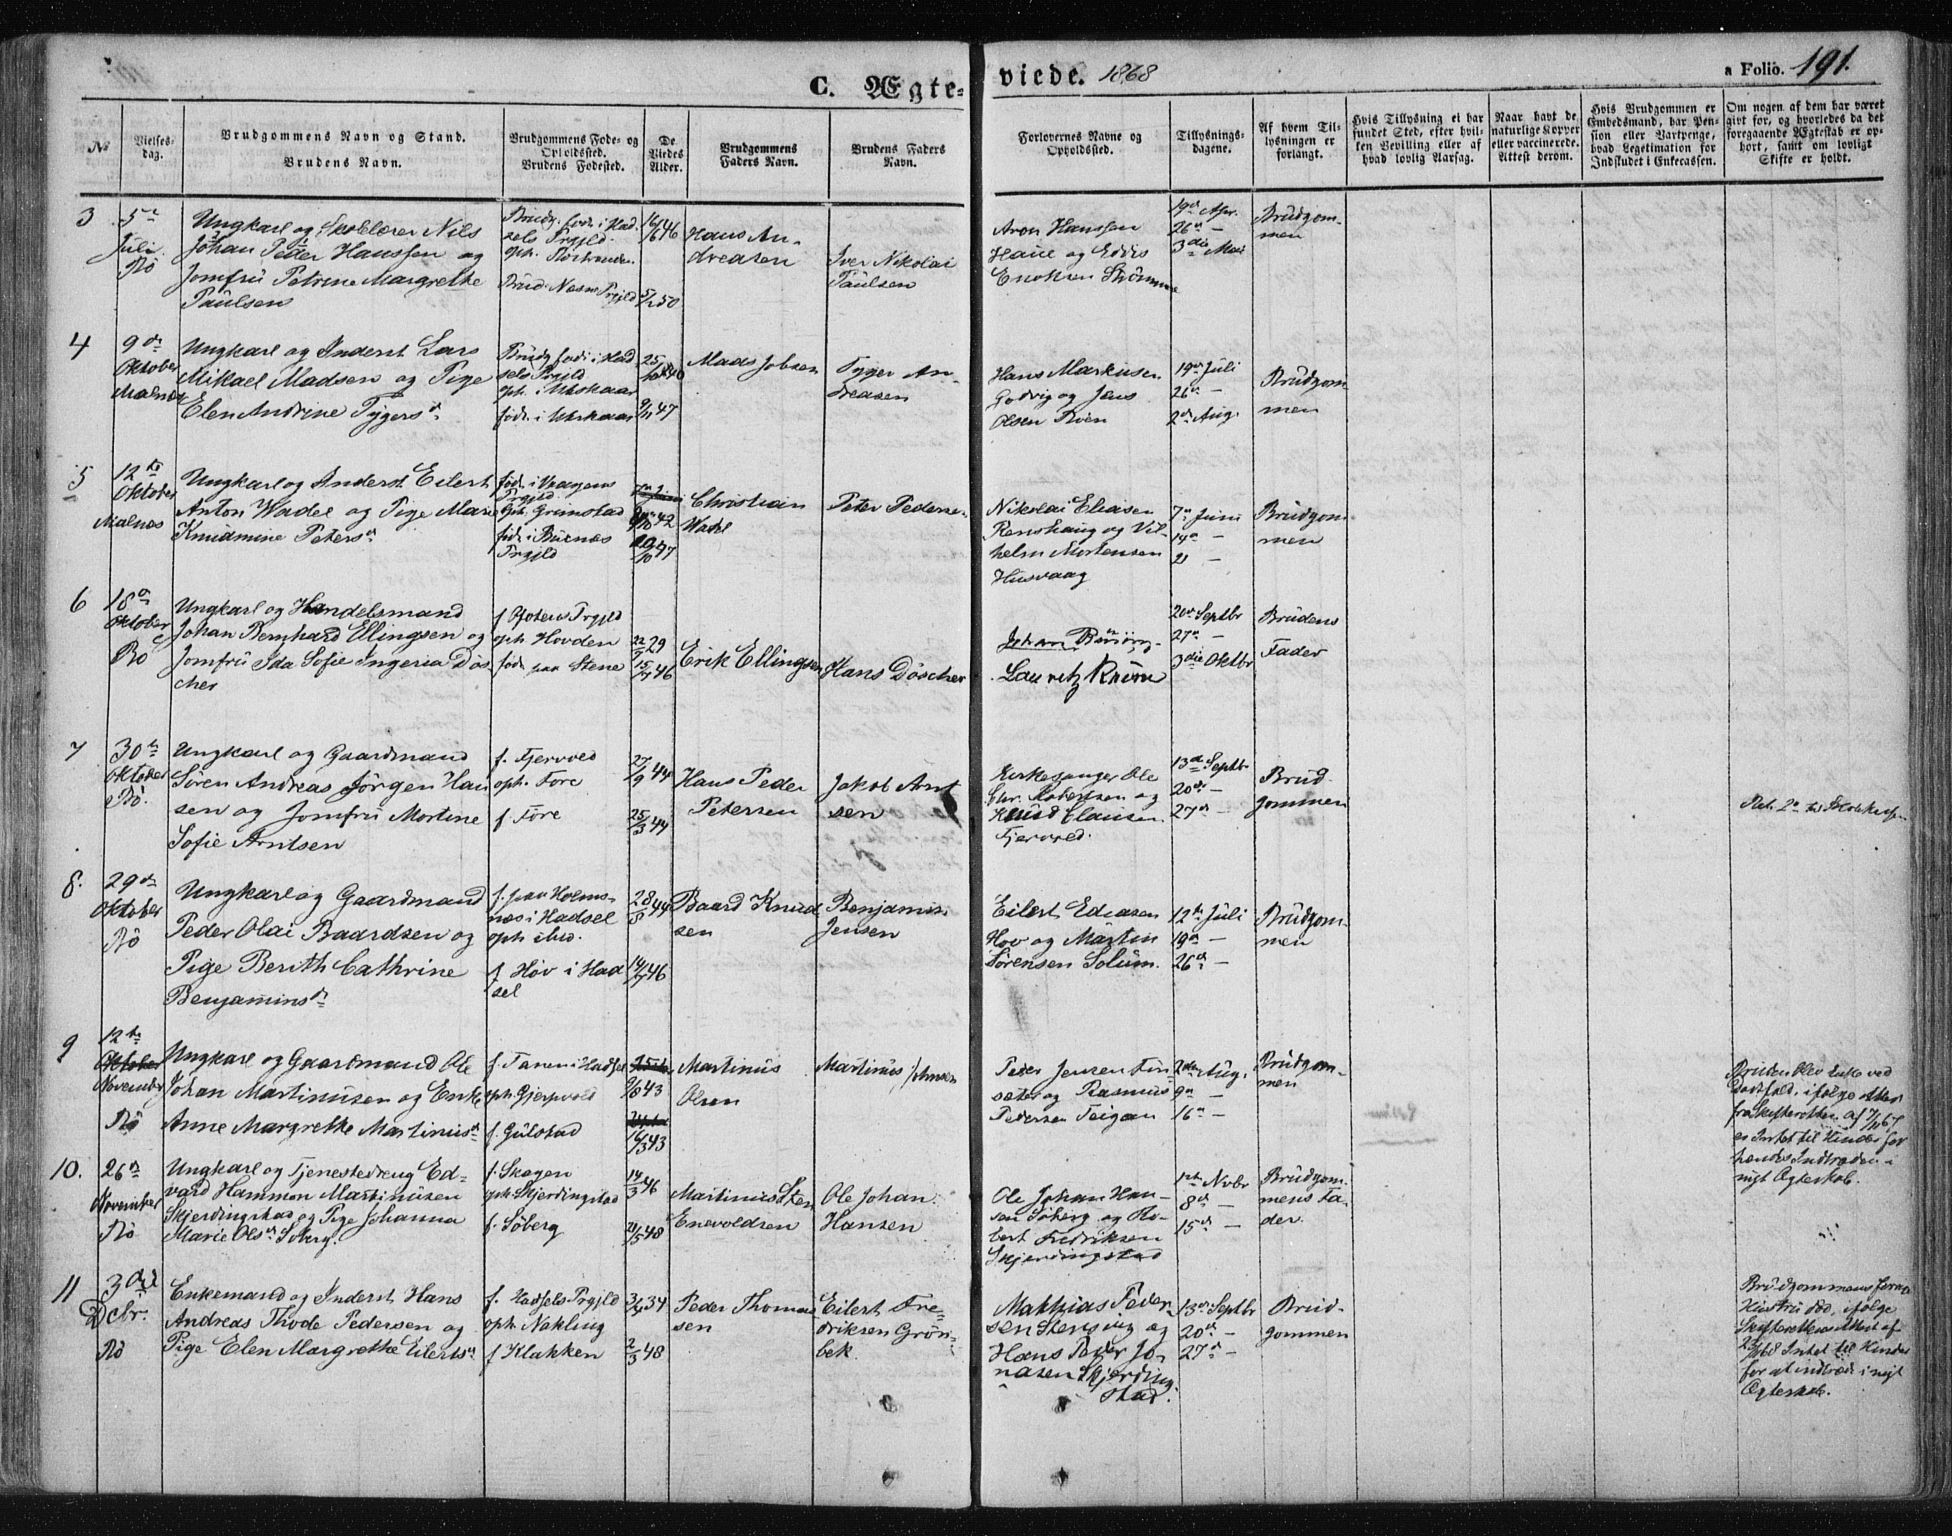 C. Ægte-
viede. 1868
a Folio. 191.
№
Vielses-
dag.
Brudgommens Navn og Stand.
Brudens Navn.
Brudgommens Føde- og
Opholdssted.
Brudens Fødested.
De
Viedes
Alder.
Brudgommens
Faders Navn.
Brudens Faders
Navn.
Forlovernes Navne og
Opholdssted.
Tillysnings-
dagene.
Af hvem Til-
lysningen er
forlangt.
Hvis Tillysning ei har
fundet Sted, efter hvil-
ken Bevilling eller af
hvad lovlig Aarsag.
Naar havt de
naturlige Kopper
eller vaccinerede.
Attest derom.
Hvis Brudgommen er
Embedsmand, har Pen-
sion eller Vartpenge,
hvad Legetimation for
Indskudet i Enkecassen.
Om nogen af dem har været
gift før, og hvorledes da det
foregaaende Ægteskab er op-
hørt, samt om lovligt
Skifte er holdt.
3
5te
Juli
Bö
Ungkarl og Skolelærer Nils
Johan Peder Hanssen og
Jomfru Petrine Margrethe
Paulsen
Brudg. föd. i Had
sels Prgjld.
oph.
Brud. Næsne Prgjld
16/6 46
5/2 50
Hans An-
dreasen
Iver Nikolai
Paulsen
Aron Hanssen
Haue og Eddis
Enoksen Strömme
19de Apr.
26de —
3die Mai
Brudgom-
men
4
9de
Oktober
Malnæs
Ungkarl og Inderst Lars
Mikael Madsen og Pige
Elen Andrine Tygersdr
Brudg föd. i Had
sels Prgjld
oph. i Utskaar
föd. i Utskaar
25/10 40
9/11 47
Mads Jobsen
Tyger An-
dreasen
Hans Markusen
Godvig og Jens
Olsen Röen
19de Juli
26de —
2de Aug.
Brudgom
men
5
12te
Oktober
Malnæs
Ungkarl og Inderst Eilert
Anton Wadel og Pige Mari
Knudmine Petersdr
föd. i Vaagens
Prgjld.
Oph. Grimstad
föd. i Buknæs
Prgjld
42
47
Christian
Wadel
Peter Pedersen
Nikolai Eliasen
Ramshaug og Vil-
helm Mortensen
Husvaag
7de Juni
14de —
21 —
Brudgom
men
6
18de
Oktober
Bö
Ungkarl og Handelsmand
Johan Bernhard Ellingsen og
Jomfru Ida Sofie Ingeria Dös
cher
f. Ofotens Prgjld
oph. Hovden
föd. paa Stene
29
15/7 46
Erik Ellingsen
Hans Döscher
Johan
Lauritz
20de Septbr
27de —
3die Oktbr
Brudens
Fader
7
30te
Oktober
Bö.
Ungkarl og Gaardmand
Sören Andreas Jörgen Han
sen og Jomfru Mortine
Sofie Arntsen
f. Fjervold
oph. Före
f. Före
27/9 44
25/3 44
Hans Peder
Petersen
Jakob Arnt
sen
Kirkesanger Ole
Chr. Robertsen og
Knud Clausen
Fjervold.
13de Septbr
20de —
27de —
Brud-
gommen
8.
29de
Oktober
Bö
Ungkarl og Gaardmand
Peder Olai Baardsen og
Pige Berith Cathrine
Benjaminsdr
f. paa Holms-
næs i Hadsel
oph. ibid.
f. Hov i Had
sel
28/8 44
14/7 46
Baard Knud
sen
Benjamin
Jensen
Eilert Ediasen
Hov og Martin
Sörensen Solum.
12te Juli
19de —
26de —
Brudgom-
men
9
12te
Oktober
November
Bö
Ungkarl og Gaardmand Ole
Johan Martinusen og Enke
Anne Margrethe Martinusdr
f. Tanem i Hadsel
oph. Gjerpvold
f. Gulstad
43
43
Martinus
Olsen
Martinus
Peder Jensen Fin
sæter og Rasmus
Pedersen Teigan
2den Aug.
9de —
16de —
Brudgom-
men
Bruden blev Enke ved
Dødsfald, i følge Attest
fra Skifteretten af
er Intet til Hinder for
hendes Indtræden i
nyt Ægteskab.
10.
26de
November
Bö
Ungkarl og Tjenestedreng Ed-
vard Hammon Martinusen
Skjerdingstad og Pige Johanna
Marie Olsdr Söberg.
f. Skagen
oph. Skjerdingstad
f. Söberg
14/3 46
48
Martinus Sten
Enevoldsen
Ole Johan
Hansen
Ole Johan Han-
sen Söberg og Ro-
bert Fredriksen
Skjerdingstad
1ste Nvbr
8de —
15de —
Brudgom-
mens Fa-
der.
11
3die
Dcbr.
Bö
Enkemand og Inderst Hans
Andreas Thode Pedersen og
Pige Elen Margrethe Eilertsdr
f. Hadsels Prgjld
oph. Nykling
f. Klakken
34
2/3 48
Peder Thomas
sen
Eilert Fre-
driksen Grön-
bek
Matthias Peder-
sen Stensvig og
Hans Peder Jo-
nasen Skjerding-
stad.
13de Septbr
20de —
27de —
Brud-
gommen
Brudgommens forrige
Hustru död, ifölge
Skifterettens Attest af
Intet til Hinder
for at indtræde i nyt
Ægteskab.